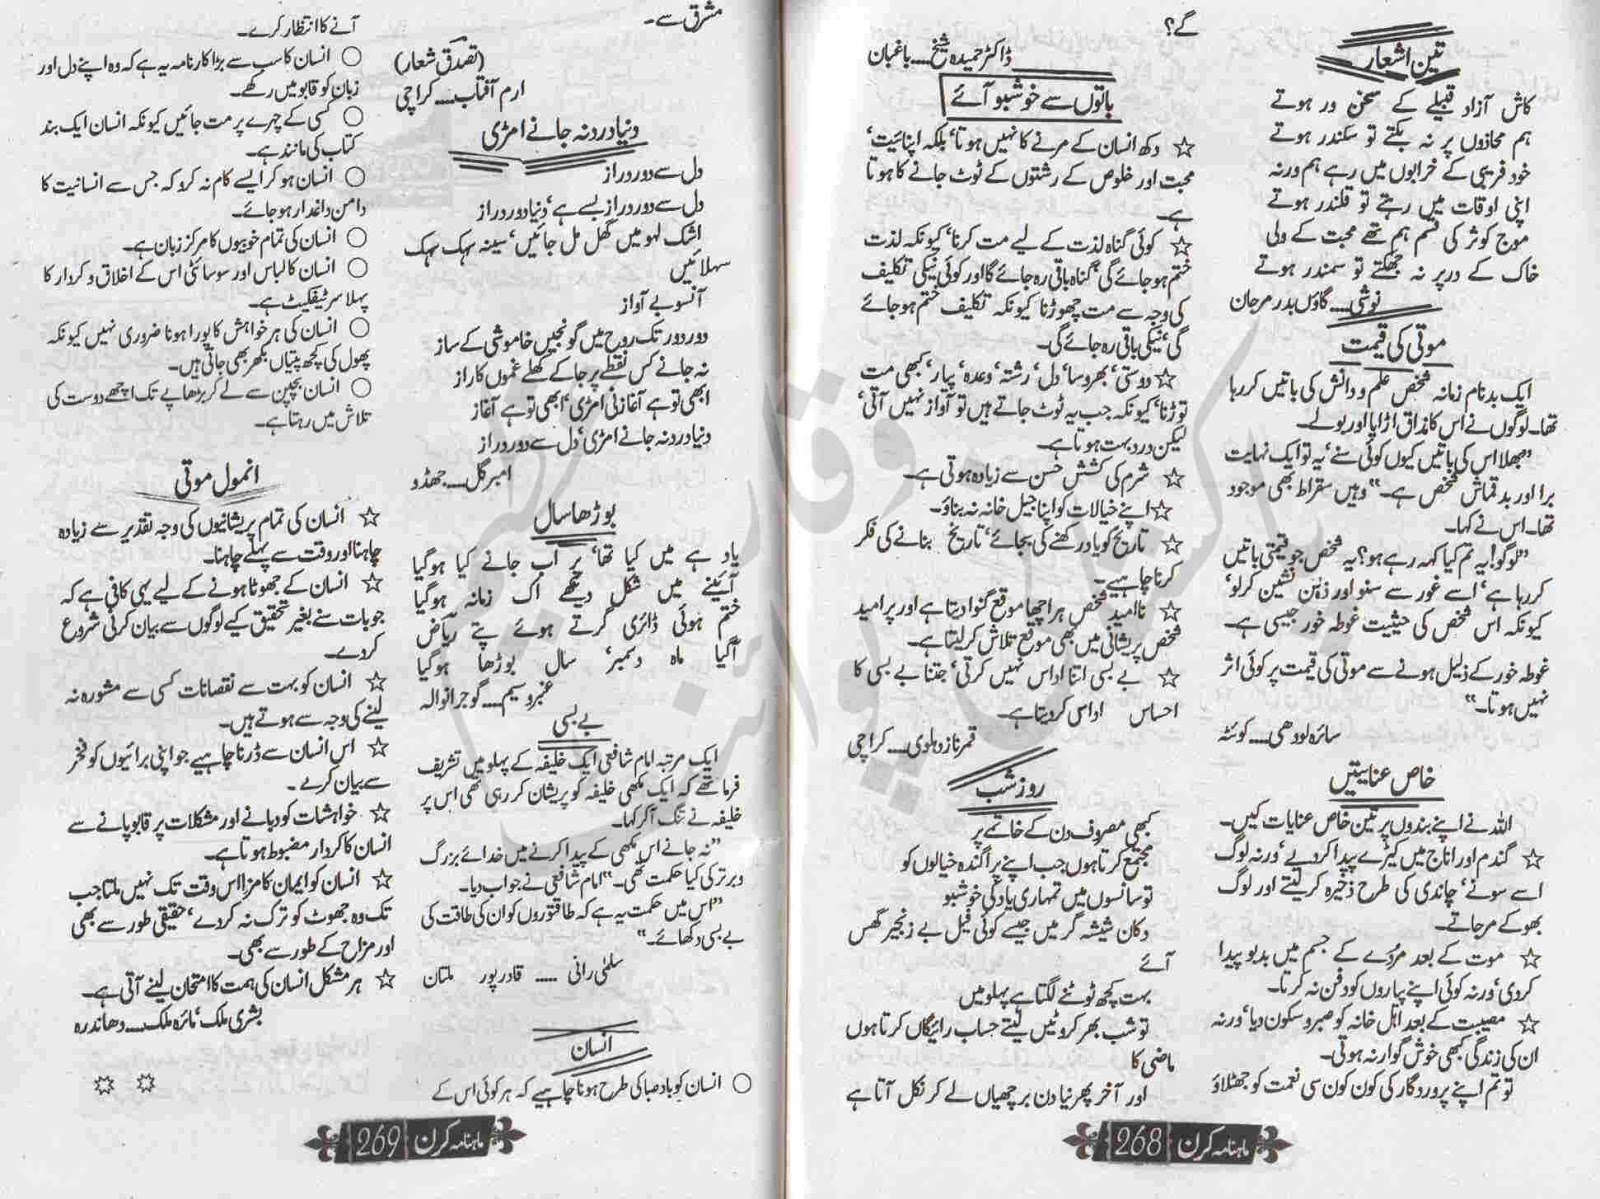 تین اشعار
کاش آزاد قبیلے کے سخن ور ہوتے
ہم محاذوں پر نہ بکتے تو سکندر ہوتے
خود فریبی کے خرابوں میں رہے ہم ورنہ
اپنی اوقات میں رہتے تو قلندر ہوتے
موج کوثر کی قسم ہم تھے محبت کے ولی
خاک کے در پر نہ جھکتے تو سمندر ہوتے
نوشی.... گاؤں بدر مرجان
موتی کی قیمت
ایک بدنام زمانہ شخص علم و دانش کی باتیں کر رہا
تھا۔ لوگوں نے اس کا مذاق اڑایا اور بولے۔
”بھلا اس کی باتیں کیوں کوئی سنے، یہ تو ایک نہایت
برا اور بد قماش شخص ہے۔“ وہیں سقراط بھی موجود
تھا۔ اس نے کہا۔
”لوگو! یہ تم کیا کہہ رہے ہو؟ یہ شخص جو قیمتی باتیں
کر رہا ہے، اسے غور سے سنو اور ذہن نشین کر لو،
کیونکہ اس شخص کی حیثیت غوطہ خور جیسی ہے۔
غوطہ خور کے ذلیل ہونے سے موتی کی قیمت پر کوئی اثر
نہیں ہوتا۔“
سائرہ لودھی.... کوئٹہ
خاص عنایتیں
اللہ نے اپنے بندوں پر تین خاص عنایات کیں۔
☆ گندم اور اناج میں کیڑے پیدا کر دیے، ورنہ لوگ
اسے سونے، چاندی کی طرح ذخیرہ کر لیتے اور لوگ
بھوکے مر جاتے۔
☆ موت کے بعد مردے کے جسم میں بدبو پیدا
کر دی، ورنہ کوئی اپنے پیاروں کو دفن نہ کرتا۔
☆ مصیبت کے بعد اہل خانہ کو صبر و سکون دیا، ورنہ
ان کی زندگی کبھی خوش گوار نہ ہوتی۔
تو تم اپنے پروردگار کی کون کون سی نعمت کو جھٹلاؤ
گے؟
ڈاکٹر حمیدہ شیخ.... باغبان
باتوں سے خوشبو آئے
☆ دکھ انسان کے مرنے کا نہیں ہوتا، بلکہ اپنائیت،
محبت اور خلوص کے رشتوں کے ٹوٹ جانے کا ہوتا
ہے۔
☆ کوئی گناہ لذت کے لیے مت کرنا، کیونکہ لذت
ختم ہو جائے گی، گناہ باقی رہ جائے گا اور کوئی نیکی تکلیف
کی وجہ سے مت چھوڑنا کیونکہ تکلیف ختم ہو جائے
گی، نیکی باقی رہ جائے گی۔
☆ دوستی، بھروسا، دل، رشتہ، وعدہ، پیار، کبھی مت
توڑنا، کیونکہ جب یہ ٹوٹ جاتے ہیں تو آواز نہیں آتی،
لیکن درد بہت ہوتا ہے۔
☆ شرم کی کشش حسن سے زیادہ ہوتی ہے۔
☆ اپنے خیالات کو اپنا جیل خانہ نہ بناؤ۔
☆ تاریخ کو یاد رکھنے کی بجائے، تاریخ بنانے کی فکر
کرنا چاہیے۔
☆ ناامید شخص ہر اچھا موقع گنوا دیتا ہے اور پر امید
شخص پریشانی میں بھی موقع تلاش کر لیتا ہے۔
☆ بے بسی اتنا اداس نہیں کرتی، جتنا بے بسی کا
احساس اداسی کر دیتا ہے۔
قمر ناز دہلوی.... کراچی
روز شب
کبھی مصروف دن کے خاتمے پر
مجتمع کرتا ہوں جب اپنے پراگندہ خیالوں کو
تو سانسوں میں تمہاری یاد کی خوشبو
دکان شیشہ گر میں جیسے کوئی فیل بے زنجیر گھس
آئے
بہت کچھ ٹوٹنے لگتا ہے پہلو میں
تو شب بھر کروٹیں لیتے حساب رائیگاں کرتا ہوں
ماضی کا
اور آخر پھر نیا دن برچھیاں لے کر نکل آتا ہے
ماہنامہ کرن 268
مشرق سے۔
(تصدق شعار)
ارم آفتاب.... کراچی
دنیا درد نہ جانے امڑی
دل سے دور دراز
دل سے دور دراز بسے ہے، دنیا دور دراز
اشک لہو میں گھل مل جائیں، سینہ سہک سہک
سہلائیں
آنسو بے آواز
دور دور تک روح میں گونجیں خاموشی کے ساز
نہ جانے کس نقطے پر جا کے کھلے غموں کا راز
ابھی تو ہے آغاز نی امڑی، ابھی تو ہے آغاز
دنیا درد نہ جانے امڑی، دل سے دور دراز
امبر گل.... جھڈو
بوڑھا سال
یاد ہے میں کیا تھا، پر اب جانے کیا ہو گیا
آئینے میں شکل دیکھے اک زمانہ ہو گیا
ختم ہوئی ڈائری گرتے ہوئے پتے ریاض
آ گیا ماہ دسمبر، سال بوڑھا ہو گیا
عنبر وسیم.... گوجرانوالہ
بے بسی
ایک مرتبہ امام شافعی ایک خلیفہ کے پہلو میں تشریف
فرما تھے کہ ایک مکھی خلیفہ کو پریشان کر رہی تھی اس پر
خلیفہ نے تنگ آ کر کہا۔
”نہ جانے اس مکھی کے پیدا کرنے میں خدائے بزرگ
و برتر کی کیا حکمت تھی۔“ امام شافعی نے جواب دیا۔
”اس میں حکمت یہ ہے کہ طاقتوروں کو ان کی طاقت کی
بے بسی دکھائے۔“
سلمٰی رانی .... قادر پور ملتان
انسان
○ انسان کو باد صبا کی طرح ہونا چاہیے کہ ہر کوئی اس کے
آنے کا انتظار کرے۔
○ انسان کا سب سے بڑا کارنامہ یہ ہے کہ وہ اپنے دل اور
زبان کو قابو میں رکھے۔
○ کسی کے چہرے پر مت جائیں کیونکہ انسان ایک بند
کتاب کی مانند ہے۔
○ انسان ہو کر ایسے کام نہ کرو کہ جس سے انسانیت کا
دامن داغدار ہو جائے۔
○ انسان کی تمام خوبیوں کا مرکز زبان ہے۔
○ انسان کا لباس اور سوسائٹی اس کے اخلاق و کردار کا
پہلا سرٹیفکیٹ ہے۔
○ انسان کی ہر خواہش کا پورا ہونا ضروری نہیں کیونکہ
پھول کی کچھ پتیاں بکھر بھی جاتی ہیں۔
○ انسان بچپن سے لے کر بڑھاپے تک اچھے دوست کی
تلاش میں رہتا ہے۔
انمول موتی
☆ انسان کی تمام پریشانیوں کی وجہ تقدیر سے زیادہ
چاہنا اور وقت سے پہلے چاہنا۔
☆ انسان کے جھوٹا ہونے کے لیے یہی کافی ہے کہ
جو بات سنے بغیر تحقیق کیے لوگوں سے بیان کرنی شروع
کر دے۔
☆ انسان کو بہت سے نقصانات کسی سے مشورہ نہ
لینے کی وجہ سے ہوتے ہیں۔
☆ اس انسان سے ڈرنا چاہیے جو اپنی برائیوں کو فخر
سے بیان کرے۔
☆ خواہشات کو دبانے اور مشکلات پر قابو پانے سے
انسان کا کردار مضبوط ہوتا ہے۔
☆ انسان کو ایمان کا مزا اس وقت تک نہیں ملتا جب
تک وہ جھوٹ کو ترک نہ کر دے، حقیقی طور سے بھی
اور مزاح کے طور سے بھی۔
☆ ہر مشکل انسان کی ہمت کا امتحان لینے آتی ہے۔
بشریٰ ملک، نائرہ ملک.... دھاندرہ
ماہنامہ کرن 269